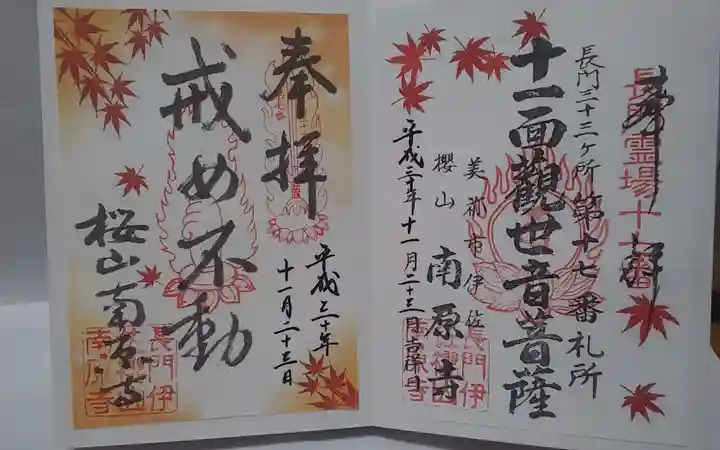 奉拝
長門三十三ヶ所 第十七番札所
十一面觀世音菩薩
美祢市伊佐
櫻山 南原寺
平成三十年十一月二十三日吉祥日
長門伊
奉拝
平成三十年
十一月二十三日
戒め不動
桜山南原寺
長門伊